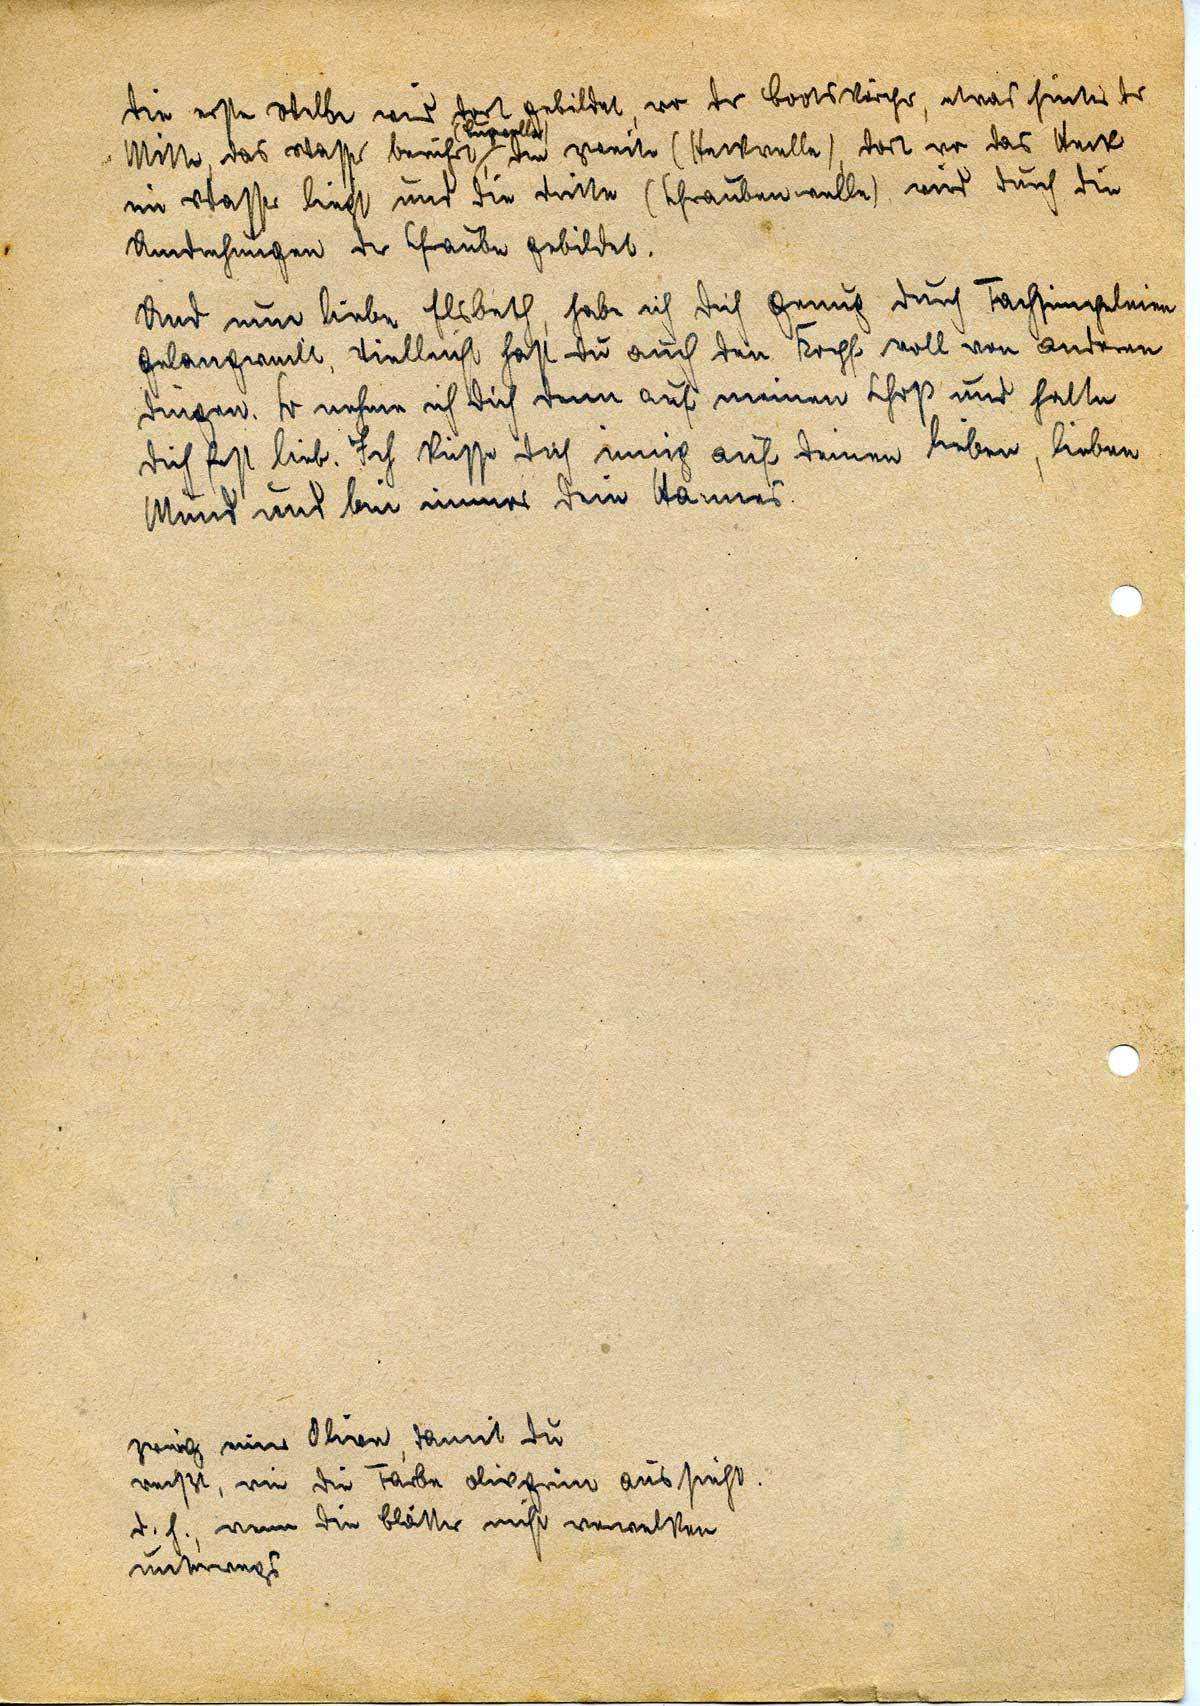 Die erste Welle wird dort gebildet, wo der Bootskörper, etwas hinter der
(Bugwelle)
Mitte, das Wasser berührt, die zweite (Heckwelle), dort wo das Heck
im Wasser liegt und die dritte (Schraubenwelle) wird durch die
Umdrehungen der Schraube gebildet.
Und nun liebe Elsbeth, habe ich Dich genug durch Fachsimpeleien
gelangweilt, vielleicht hast Du auch den Kopf voll von anderen
Dingen. So nehme ich Dich denn auf meinen Schoß und halte
Dich fest lieb. Ich küsse Dich innig auf Deinen lieben, lieben
Mund und bin immer Dein Hannes.
zweig einer Olive, damit Du
weißt, wie die Farbe olivgrün aussieht.
d. h., wenn die Blätter nicht verwelken
unterwegs